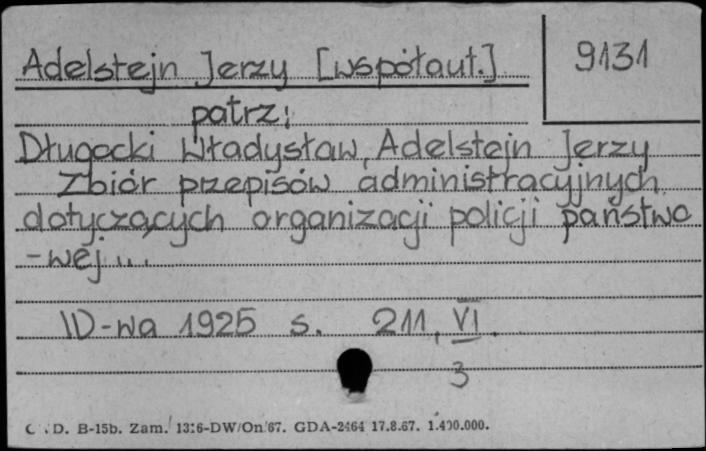 Adelstejn Jerzy [współaut.]
9131
patrz:
Długocki Władysław, Adelstejn Jerzy
Zbiór przepisów administracyjnych
dotyczących organizacji policji państwo
-wej...
W-wa 1925 s. 211, VI.
3
C.D. B-15b. Zam. 1316-DW/On/67. GDA-2464 17.8.67. 1.400.000.